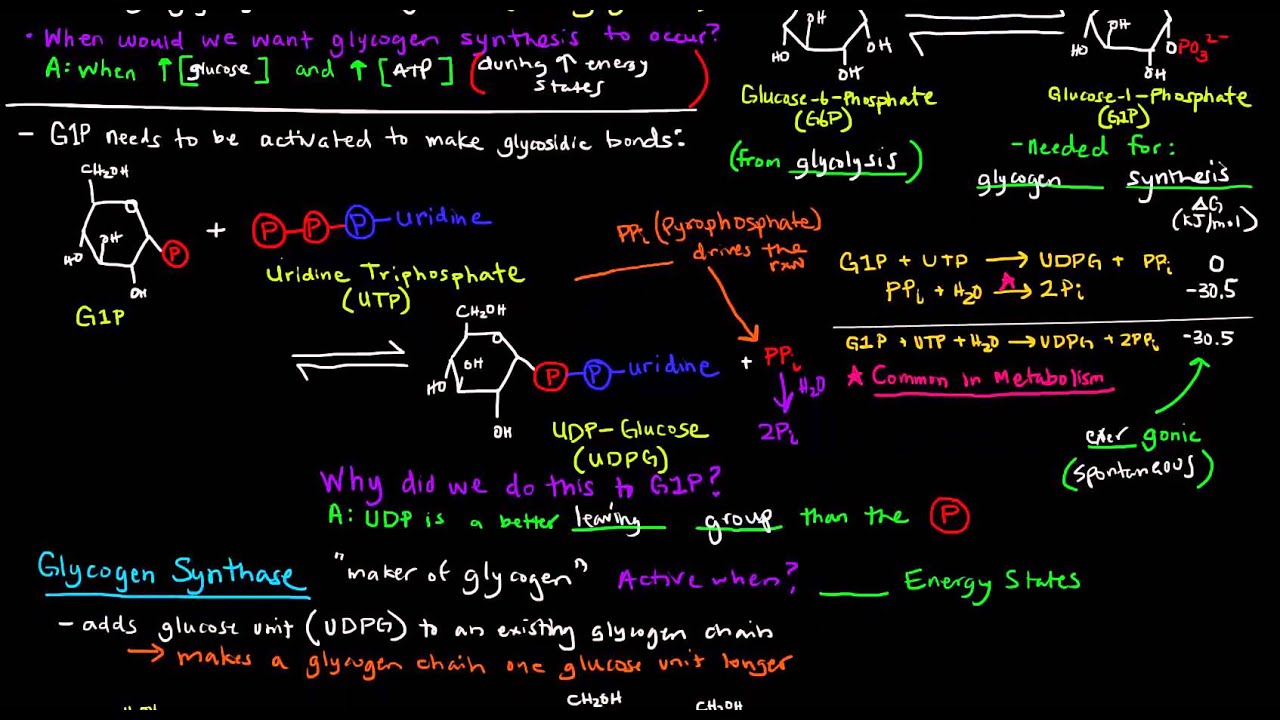 • When would we want glycogen synthesis to occur?
A: When ↑ [glucose] and ↑ [ATP] (during ↑ energy states)
- G1P needs to be activated to make glycosidic bonds:
CH₂OH
OH
HO
OH
P
G1P
+
P-P-P-uridine
Uridine Triphosphate
(UTP)
PPᵢ (Pyrophosphate)
drives the
rxn
CH₂OH
O
OH
HO
OH
P-P-uridine
UDP-Glucose
(UDPG)
+ PPᵢ
H₂O
2Pᵢ
OH
HO
OH
OH
Glucose-6-Phosphate
(G6P)
(from glycolysis)
OH
HO
OH
OPO₃²⁻
Glucose-1-Phosphate
(G1P)
-needed for:
glycogen synthesis
ΔG
(kJ/mol)
G1P + UTP → UDPG + PPᵢ 0
PPᵢ + H₂O → 2Pᵢ -30.5
G1P + UTP + H₂O → UDPG + 2PPᵢ -30.5
★ Common in Metabolism
exergonic
(spontaneous)
Why did we do this to G1P?
A: UDP is a better leaving group than the P
Glycogen Synthase "maker of glycogen" Active when? ____ Energy States
- adds glucose unit (UDPG) to an existing glycogen chain
→ makes a glycogen chain one glucose unit longer
CH₂OH
CH₂OH